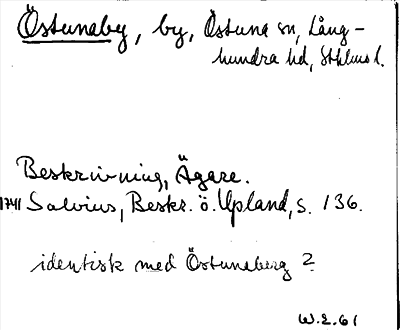 Östunaby, by, Östuna sn, Lång-
hundra hd, Sthlms l.
Beskrivning, Ägare.
1741 Salvius, Beskr. ö. Upland, s. 136.
identisk med Östunaberg?
W.E. 61